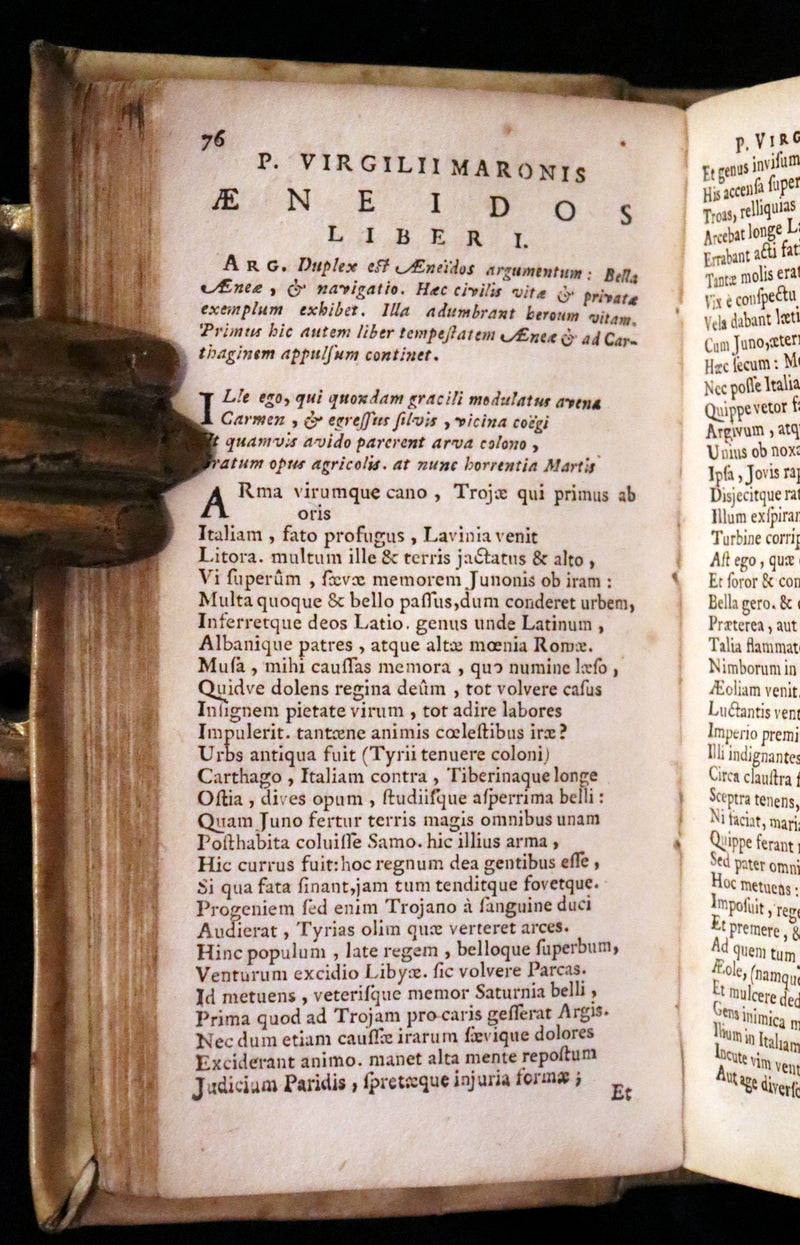 76
P. VIRGILII MARONIS
ÆNEIDOS
LIBER I.
ARG. Duplex est Æneidos argumentum : Bella
Æneæ , & navigatio. Hæc civilis vitæ & privatæ
exemplum exhibet. Illa adumbrant heroum vitam.
Primus hic autem liber tempeſtatem Æneæ & ad Car-
thaginem appulſum continet.
ILle ego, qui quondam gracili modulatus avena
Carmen , & egreſſus ſilvis , vicina coëgi
Ut quamvis avido parerent arva colono ,
Gratum opus agricolis. at nunc horrentia Martis
ARma virumque cano , Trojæ qui primus ab
oris
Italiam , fato profugus , Lavinia venit
Litora. multum ille & terris jactatus & alto ,
Vi ſuperûm , ſævæ memorem Junonis ob iram :
Multa quoque & bello paſſus,dum conderet urbem,
Inferretque deos Latio. genus unde Latinum ,
Albanique patres , atque altæ mœnia Romæ.
Muſa , mihi cauſſas memora , quo numine læſo ,
Quidve dolens regina deûm , tot volvere caſus
Inſignem pietate virum , tot adire labores
Impulerit. tantæne animis cœleſtibus iræ?
Urbs antiqua fuit (Tyrii tenuere coloni)
Carthago , Italiam contra , Tiberinaque longe
Oſtia , dives opum , ſtudiiſque aſperrima belli :
Quam Juno fertur terris magis omnibus unam
Poſthabita coluiſſe Samo. hic illius arma ,
Hic currus fuit:hoc regnum dea gentibus eſſe ,
Si qua fata ſinant,jam tum tenditque fovetque.
Progeniem ſed enim Trojano à ſanguine duci
Audierat , Tyrias olim quæ verteret arces.
Hinc populum , late regem , belloque ſuperbum,
Venturum excidio Libyæ. ſic volvere Parcas.
Id metuens , veteriſque memor Saturnia belli ,
Prima quod ad Trojam pro caris geſſerat Argis.
Nec dum etiam cauſſæ irarum ſævique dolores
Exciderant animo. manet alta mente repoſtum
Judicium Paridis , ſpretæque injuria formæ ;
Et
P. VIRG
Et genus inviſum
His accenſa ſuper
Troas, relliquias
Arcebat longe L
Errabant acti fat
Tantæ molis erat
Vix e conſpectu
Vela dabant læti
Cum Juno,æter
Hæc ſecum : M
Nec poſſe Italia
Quippe vetor f
Argivum , atq
Unius ob nox
Ipſa , Jovis rap
Disjecitque rat
Illum exſpiran
Turbine corrip
Aſt ego , quæ
Et ſoror & con
Bella gero. &
Præterea , aut
Talia flammat
Nimborum in
Æoliam venit.
Luctantis vent
Imperio premi
Illi indignantes
Circa clauſtra f
Sceptra tenens,
Ni faciat, maria
Quippe ferant
Sed pater omni
Hoc metuens :
Impoſuit , rege
Et premere , &
Ad quem tum
Æole, (namque
Et mulcere ded
Gens inimica m
Ilium in Italiam
Incute vim vent
Aut age diverſo